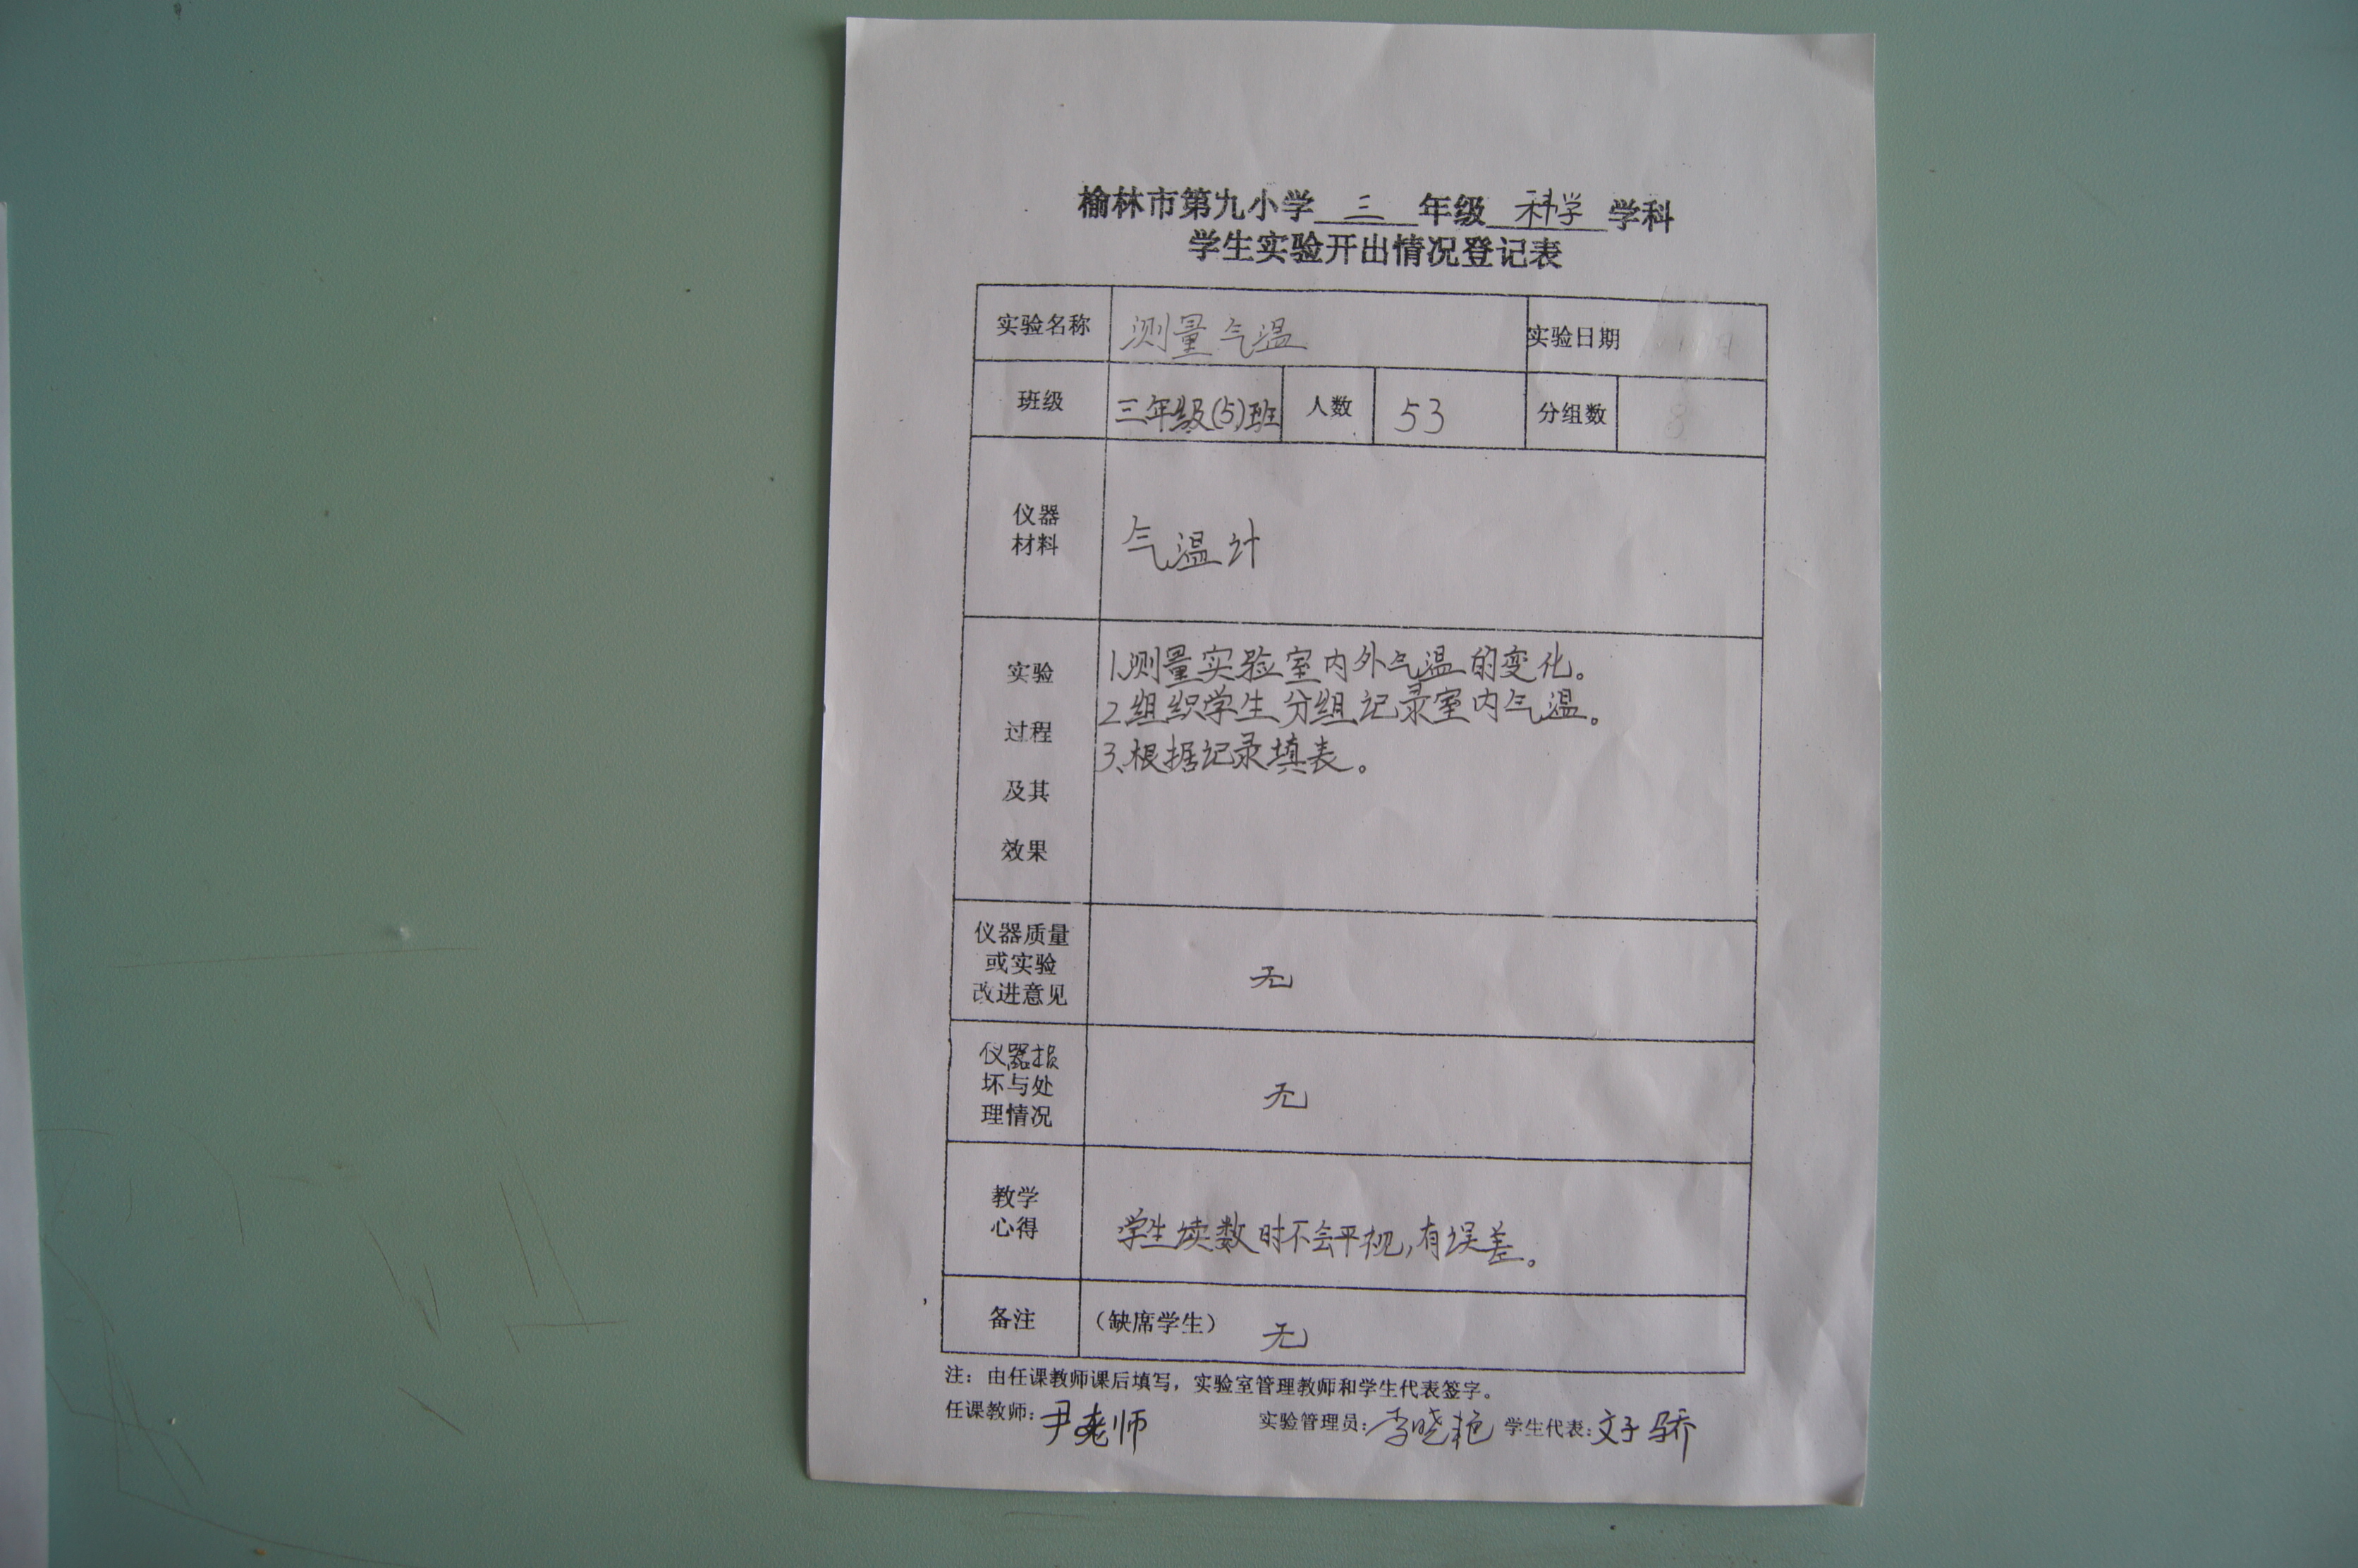 榆林市第九小学 三 年级 科学 学科
学生实验开出情况登记表
实验名称 测量气温 实验日期
班级 三年级(5)班 人数 53 分组数 8
仪器
材料
气温计
实验
过程
及其
效果
1.测量实验室内外气温的变化。
2.组织学生分组记录室内气温。
3、根据记录填表。
仪器质量
或实验
改进意见
无
仪器损
坏与处
理情况
无
教学
心得
学生读数时不会平视,有误差。
备注 (缺席学生) 无
注：由任课教师课后填写，实验室管理教师和学生代表签字。
任课教师:尹老师 实验管理员:李晓艳 学生代表:文子骄